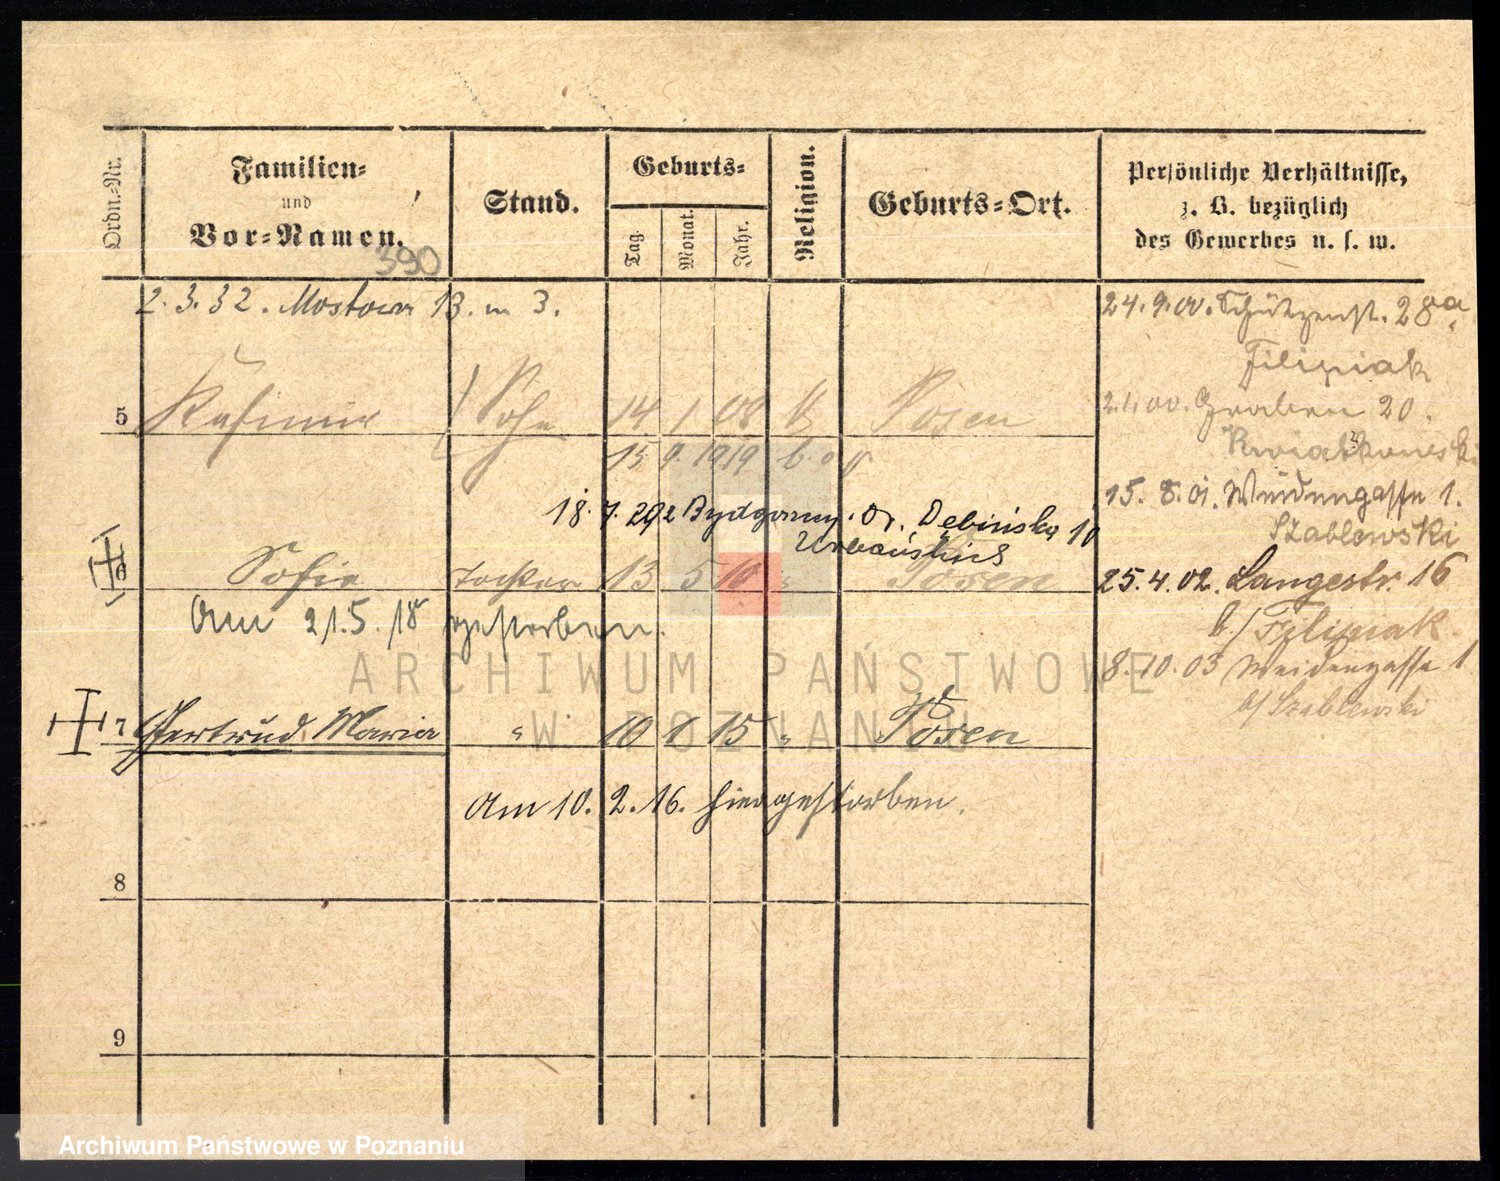 Ordn.-Nr.
Familien-
und
Vor-Namen.
Stand.
Geburts-
Tag.
Monat.
Jahr.
Religion.
Geburts-Ort.
Persönliche Verhältnisse,
z. B. bezüglich
des Gewerbes u. s. w.
390
2.3.32. Mostowa 13. m 3.
24.9.00. Schützenst. 28a
Filipiak
5 Kasimir Sohn 14 1 08 k Posen
2.1.00. Graben 20.
Kwiatkowski
15 9. 1919
15. 8. 01. Weidengasse 1.
Szablewski
18. 7. 292 Bydgoszcz. Dębińska 10
6 Sofie Tochter 13 5 10 " Posen
25.4.02. Langestr. 16
b/ Filipiak
Am 21.5.18 gestorben.
8.10.03 Weidengasse 1
b/ Szablewski
7 Gertrud Maria " 10 8 15 " Posen
Am 10. 2. 16. hier gestorben.
8
9
ARCHIWUM PAŃSTWOWE
W POZNANIU
Archiwum Państwowe w Poznaniu